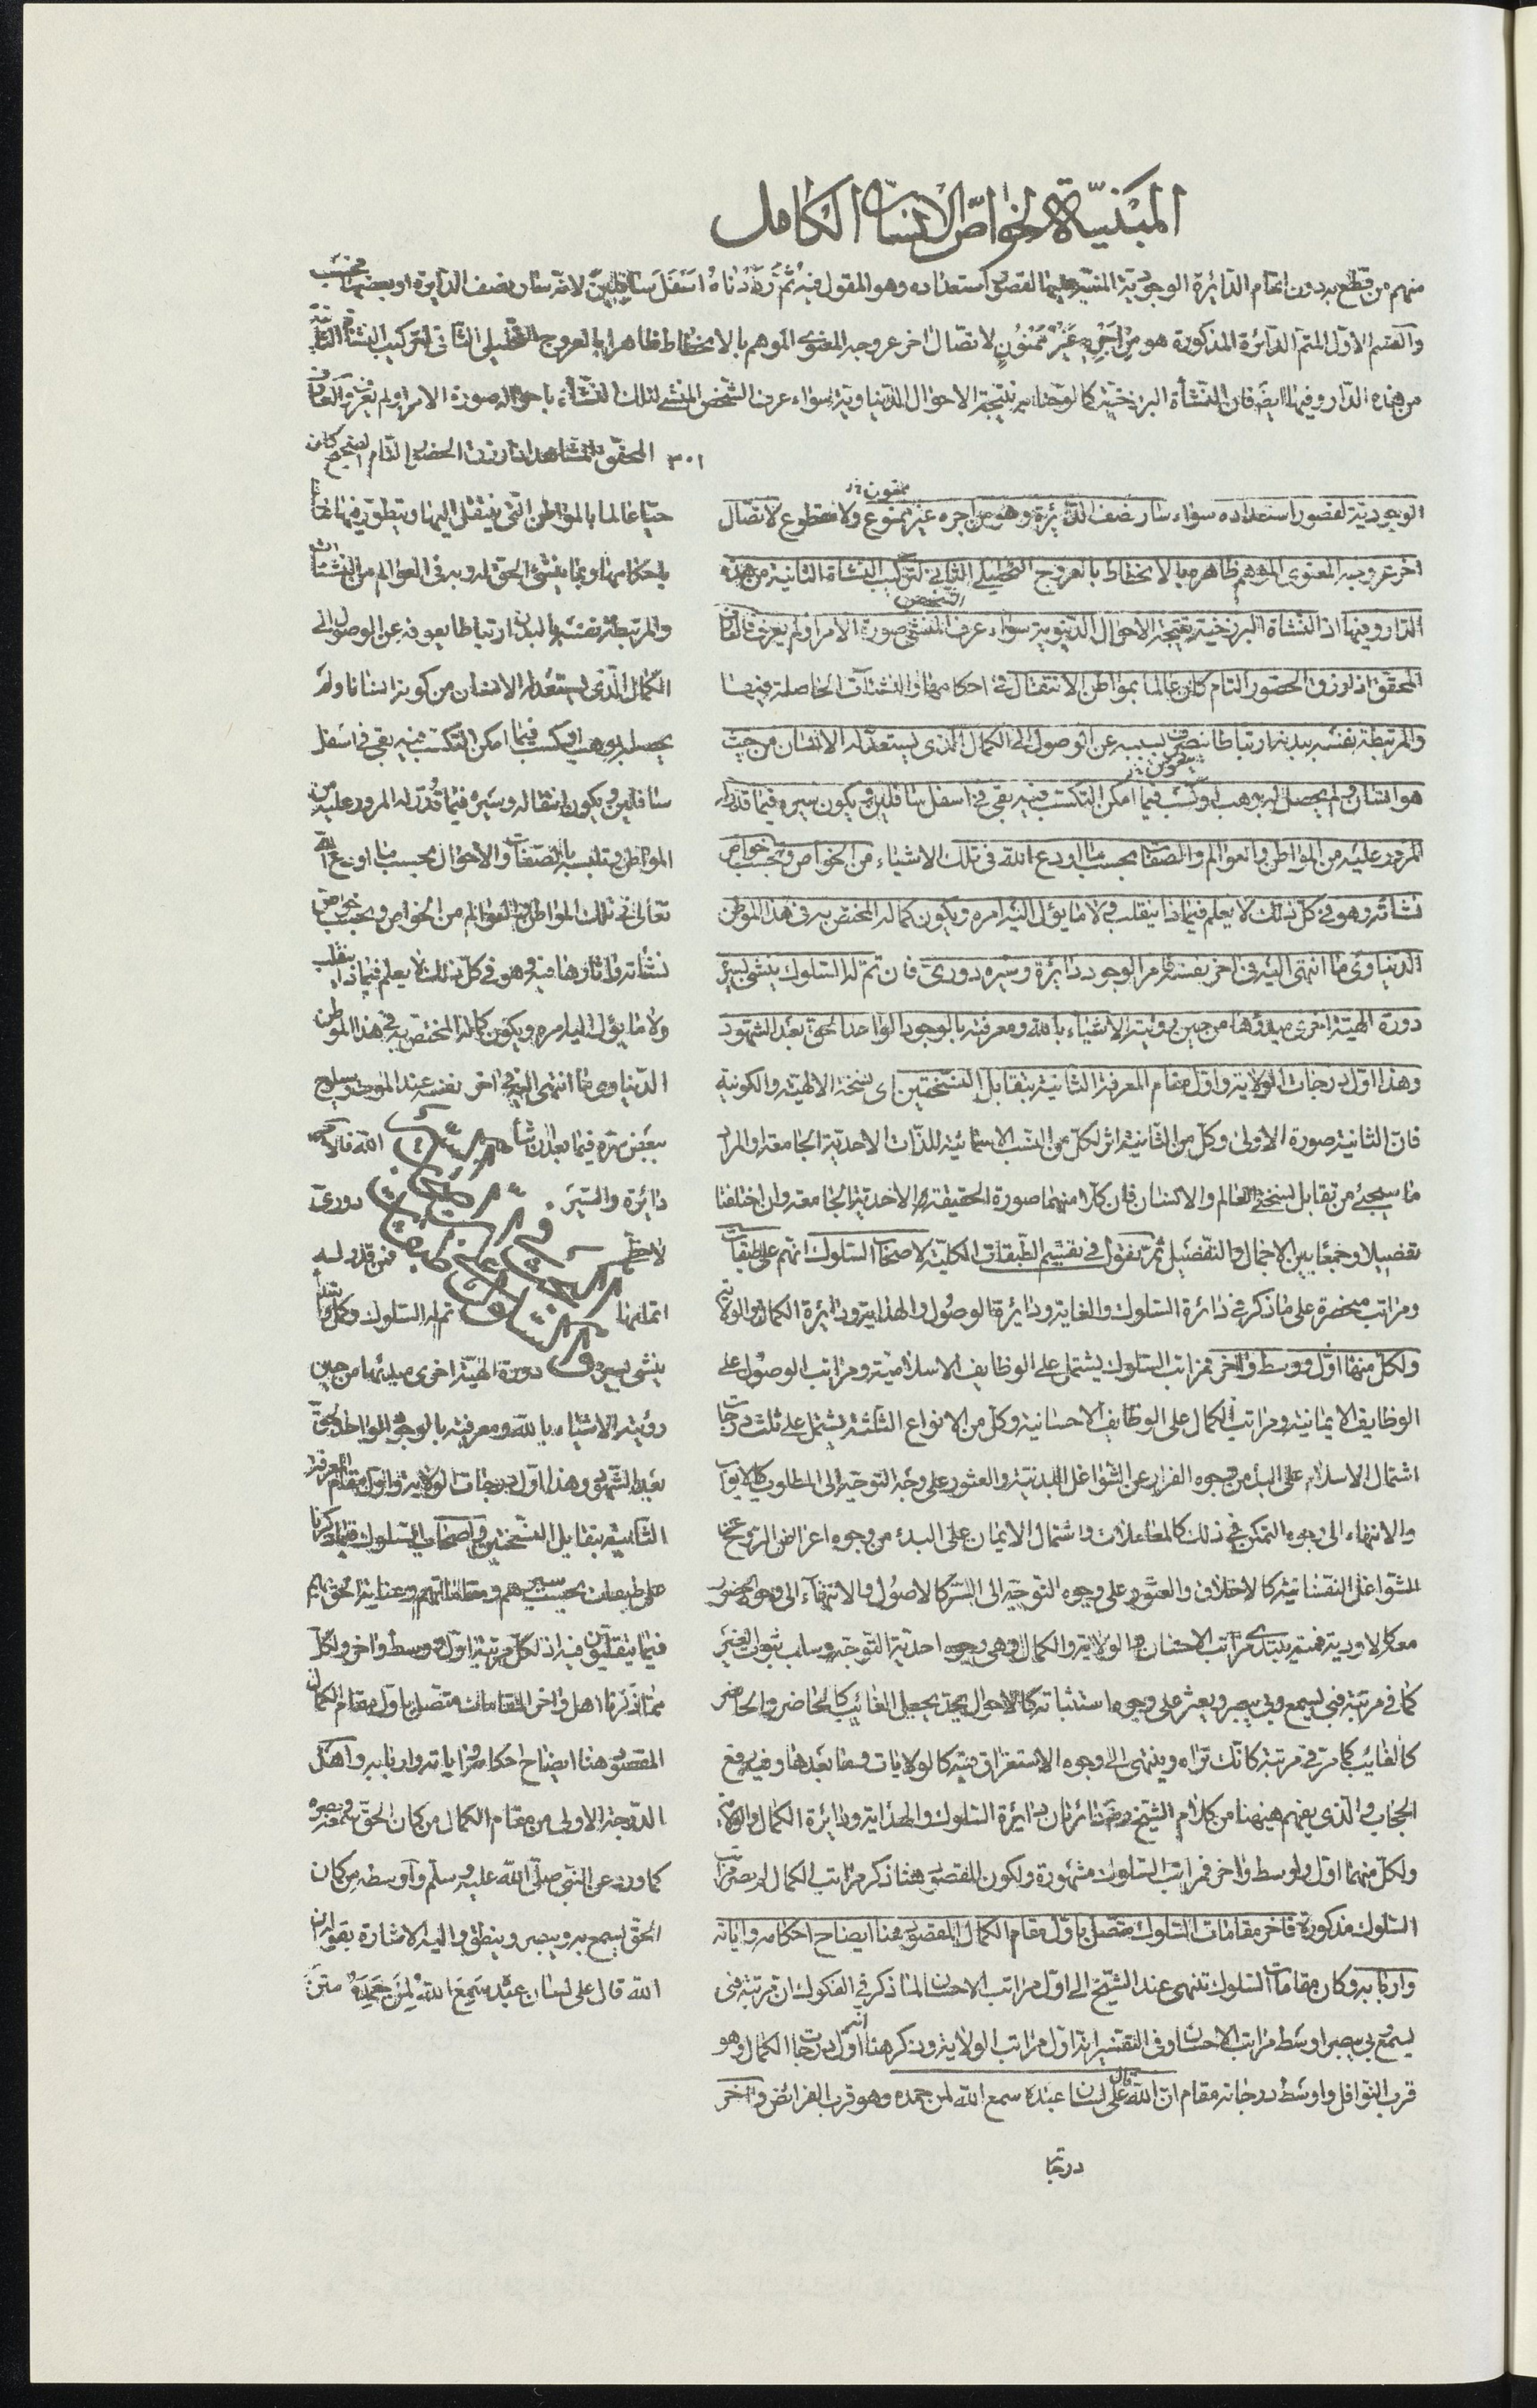 المبنيّة لخواصّ الانسان الكامل
منهم من قطع به دون اتمام الدائرة الوجودية المشير اليها لقصور استعداده وهو المقول فيه ثُمَّ رَدَدْنَاهُ اَسْفَلَ سَافِلِينَ لانّه سار نصف الدايرة او بعضها بحسب
والقسم الاوّل المتمّ الدائرة المذكورة هو من اجره غَيْرُ مَمْنُونٍ لاتصال اخر عروجه المعنوى الموهم بالانحطاط ظاهرا بالعروج التحليلى الثانى لتركيب النشأة الثانية
من هذه الدار وفيها ايضا فان النشأة البرزخية كالوحنا به نتيجة الاحوال الدنياوية سواء عرف الشخص المنشى لتلك النشأة باحواله صورة الامر او لم يعرف والعارف
٣٠١
المحقق المشاهد اذا رزق الحضور التام الصحيح كان
الوجودية لقصور استعداده سواء سار نصف الدائرة وهو من اجره غير ممنوع ولا مقطوع لاتصال
ممنون
اخر عروجه المعنوى الموهم ظاهره بالانحطاط بالعروج التحليلى الثانى لتركيب النشأة الثانية من هذه
الدار وفيها اذ النشأة البرزخية نتيجة الاحوال الدنيوية سواء عرف المنشى صورة الامر او لم يعرف فالعارف
الشخص
المحقق اذا رزق الحضور التام كان عالما بمواطن الانتقال فى احكامها والنشئات الحاصلة فيها
والمرتبطة نفسه ببدنه ارتباطا بسببه عن الوصول الى الكمال الذى يستعد له الانسان من حيث
هو انسان ولم يحصل له بوهب او كسب فيما امكن التكسب فيه بقى فى اسفل سافلين ويكون سيره فيما قدر له
المرور عليه من المواطن والعوالم والصفات بحسب ما اودع الله فى تلك الاشياء من الخواص وبحسب خواص
نشأته وهو فى كل ذلك لا يعلم فيما ذا يتقلب ولا ما يؤل اليه امره ويكون كماله المختص به فى هذا الموطن
الدنياوى ما انتهى اليه فى اخر نفسه فامر الوجود دائرة وسيره دورى فان تم له السلوك ينشى بسير
دورة الهيّة اخرى مبدؤها من حين رؤيته الاشياء بالله ومعرفته بالوجود الواحد الحق بعد الشهود
وهذا اوّل درجات الولاية واوّل مقام المعرفة الثانية بتقابل النسختين اى نسخة الالهية والكونية
فان الثانية صورة الاولى وكل من الثانية اثر لكل من النسب الاسمائية للذات الاحدية الجامعة والمراد
ما سيجئ من تقابل نسختى العالم والانسان فان كلا منهما صورة الحقيقة الاحدية الجامعة وان اختلفا
تفصيلا وجمعا بين الاجمال والتفصيل ثم نقول فى تقسيم الطبقات الكلية لاصحاب السلوك انهم على طبقات
ومراتب منحصرة على ما ذكر فى دائرة السلوك والغاية ودائرة الوصول والهداية ودائرة الكمال والولاية
ولكل منها اوّل ووسط واخر فمراتب السلوك يشتمل على الوظايف الاسلامية ومراتب الوصول على
الوظايف الايمانية ومراتب الكمال على الوظايف الاحسانية وكل من الانواع الثلثة يشتمل على ثلث درجات
اشتمال الاسلام على البدء من وجوه الفرار عن الشواغل البدنية والعثور على وجه التوجه الى المطلوب كالابواب
والانتهاء الى وجوه التمكن فى ذلك كالمعاملات واشتمال الايمان على البدء من وجوه اعراض الروح عن
الشواغل النفسانية كالاخلاق والعثور على وجوه التوجه الى السر كالاصول والانتهاء الى وجوه الحضور
معه كالاودية فمنتم يبتدى مراتب الاحسان والولاية والكمال وهى وجوه احدية التوجه وسلب ثبوت الغير
كما فى مرتبة فبى يسمع وبى يبصر ويعثر على وجوه استثباته كالاحوال بحيث يجعل الغائب كالحاضر والحاضر
كالغائب كما مر فى مرتبة كانك تراه وينتهى الى وجوه الاستغراق فيه كالولايات وما بعدها وفيه رفع
الحجاب والذى يفهم هيهنا من كلام الشيخ رض دائرتان دائرة السلوك والهداية ودائرة الكمال والولاية
ولكل منهما اوّل واوسط واخر فمراتب السلوك مشهورة ولكون المقصود هنا ذكر مراتب الكمال لم تصر مراتب
السلوك مذكورة فاخر مقامات السلوك متصل باوّل مقام الكمال المقصود هنا ايضاح احكامه واياته
واربابه وكان مقامات السلوك تنتهى عند الشيخ الى اوّل مراتب الاحسان لما ذكر فى الفكوك ان مرتبة فبى
يسمع بى يبصر اوسط مراتب الاحسان وفى التفسير انه اوّل مراتب الولاية وذكر هنا انه اوّل درجات الكمال وهو
قرب النوافل واوسط درجاته مقام ان الله قال على لسان عبده سمع الله لمن حمده وهو قرب الفرائض واخر
درجاته
حيّا عالما بالمواطن التى ينتقل اليها ويتطوّر فيها عالما
باحكامها وبما ينشئ الحق له وبه فى العوالم من النشئات
والمرتبطة نفسه بالبدن ارتباطا يعوقه عن الوصول الى
الكمال الذى يستعد له الانسان من كونه انسانا ولم
يحصل له بوهب او كسب فيما امكن التكسب فيه بقى فى اسفل
سافلين ويكون انتقاله وسيره فيما قدر له المرور عليه من
المواطن وتلبسه بالصفات والاحوال بحسب ما اودع الله
تعالى فى تلك المواطن والعوالم من الخواص وبحسب خواص
نشأته واثارها فيه وهو فى كل ذلك لا يعلم فيما ذا يتقلب
ولا ما يؤل اليه امره ويكون كماله المختص به فى هذا الموطن
الدنياوى ما انتهى اليه فى اخر نفسه عند الموت
ببعض ثمرة فيما بعد ان شاء الله فالامر
دائرة والسير دورى
فمن قدر له
اتمامها تم له السلوك وكل
ينشى بسيره دورة الهيّة اخرى مبدئها من حين
رؤيته الاشياء بالله ومعرفته بالوجود الواحد الحق
بعد الشهود وهذا اوّل درجات الولاية واوّل مقام المعرفة
الثانية بتقابل النسختين واصحاب السلوك فيما ذكرنا
على طبقات بحسب سيرهم ومقاماتهم وعناية الحق بهم
فيما يتقلبون فيه اذ لكل مرتبة اوّل ووسط واخر ولكل
مما ذكرنا اهل واخر المقامات متصل باوّل مقام الكمال
المقصود هنا ايضاح احكامه واياته واربابه واهل
الدرجة الاولى من مقام الكمال من كان الحق سمعه وبصره
كما ورد عن النبى صلّى الله عليه وسلّم واوسطه من كان
الحق يسمع به ويبصر وينطق واليه الاشارة بقوله ان
الله قال على لسان عبده سَمِعَ اللهُ لِمَنْ حَمِدَهُ